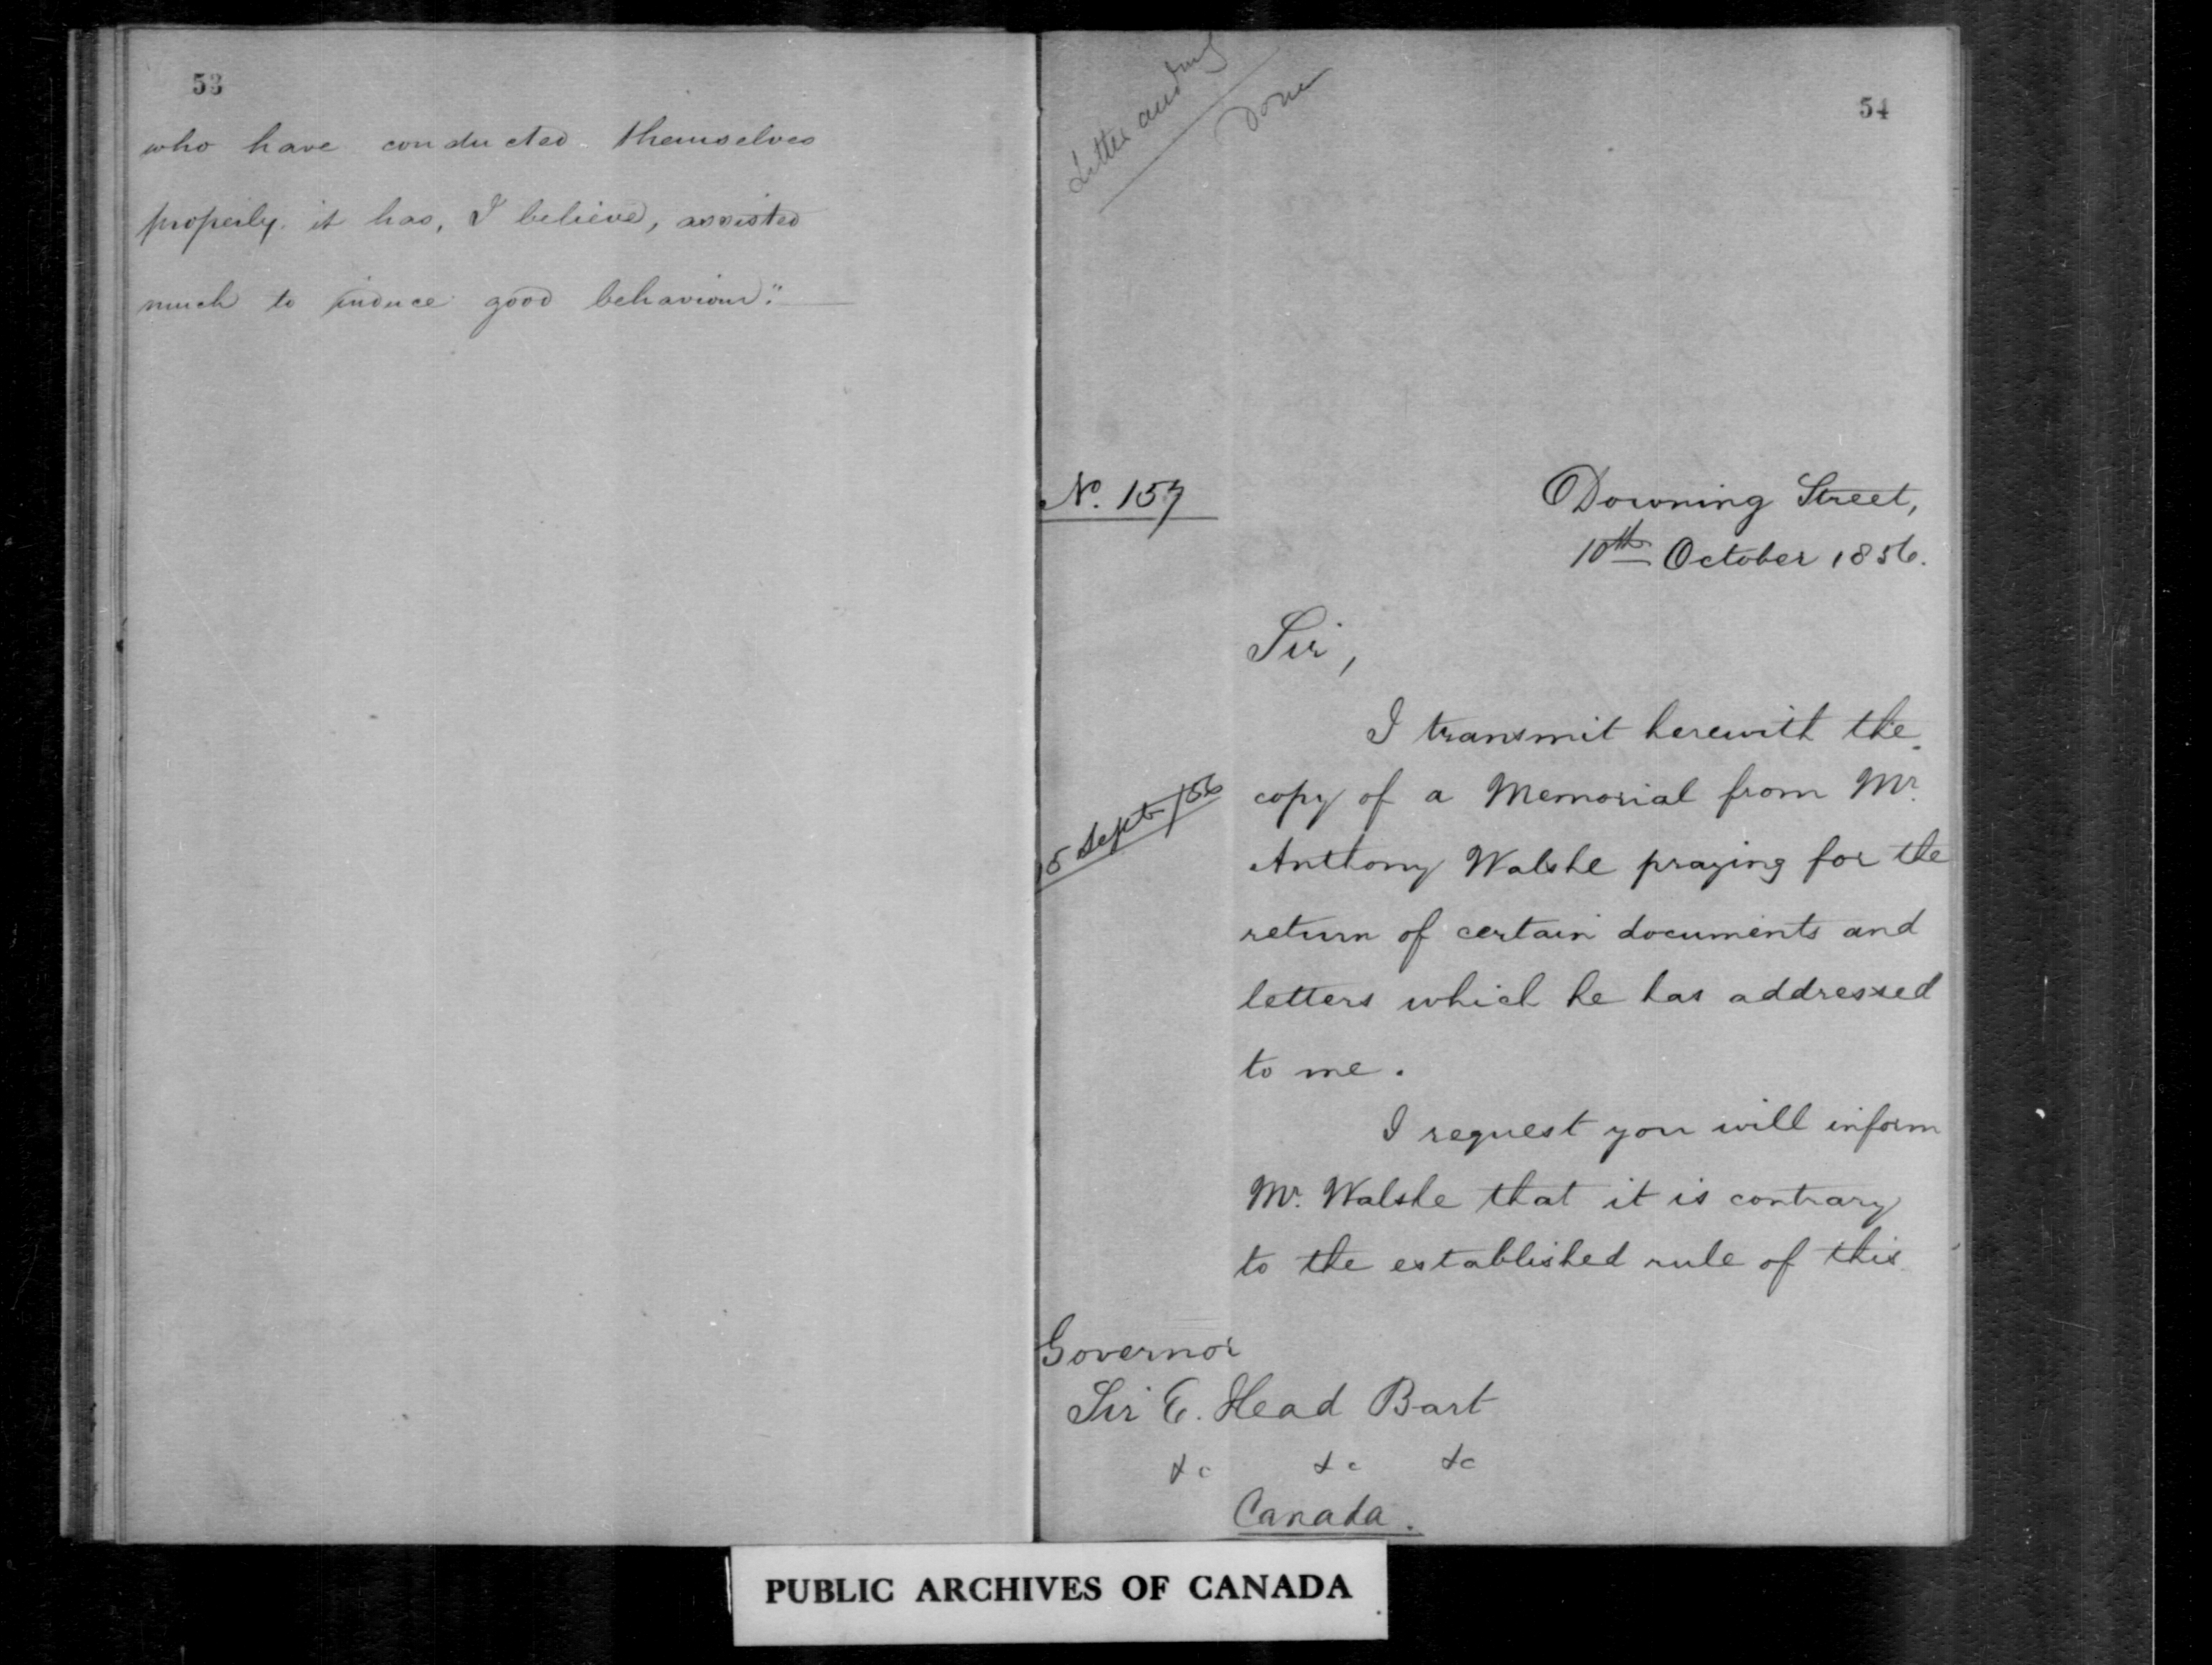 53
who have conducted themselves
properly. it has, I believe, assisted
much to induce good behaviour."
54
Done
No. 157
Downing Street,
10th October 1856.
Sir,
I transmit herewith the
copy of a Memorial from Mr.
15 Septr/56
Anthony Walshe praying for the
return of certain documents and
letters which he has addressed
to me.
I request you will inform
Mr. Walshe that it is contrary
to the established rule of this
Governor
Sir E. Head Bart
&c &c &c
Canada.
PUBLIC ARCHIVES OF CANADA